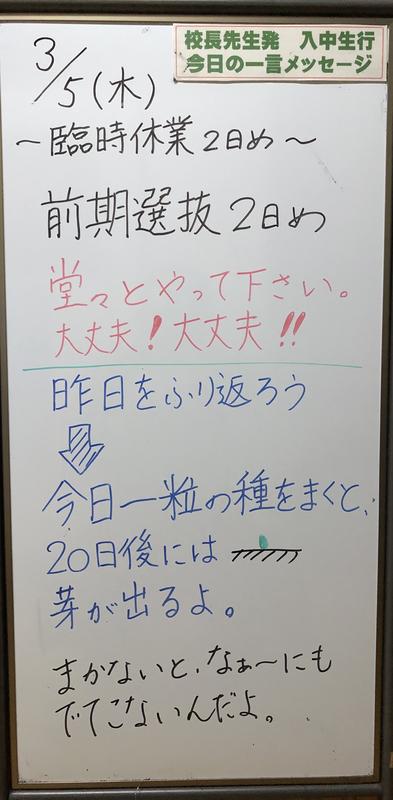 校長先生発　入中生行
今日の一言メッセージ
3/5(木)
～臨時休業2日め～
前期選抜2日め
堂々とやって下さい。
大丈夫!大丈夫!!
昨日をふり返ろう
今日一粒の種をまくと、
20日後には
芽が出るよ。
まかないと、なぁ～にも
でてこないんだよ。